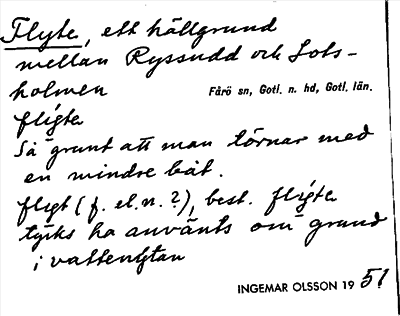 Flyte, ett hällgrund
mellan Ryssudd och Lots-
holmen
Fårö sn, Gotl. n. hd, Gotl. län.
fligte
Så grunt att man törnar med
en mindre båt.
flygt (f. el. n. ?), best. fligte
tycks ha använts om grund
i vattenytan
INGEMAR OLSSON 1951